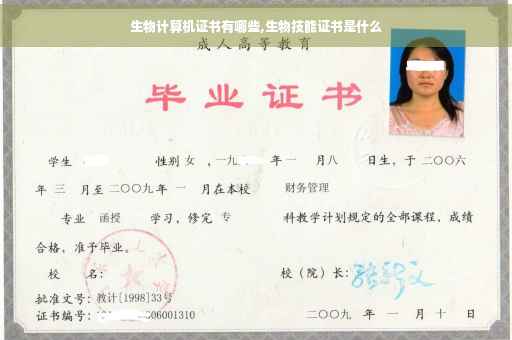 生物计算机证书有哪些,生物技能证书是什么
成人高等教育
毕业证书
学生 性别 女 ,一九 年 一 月八 日生,于 二〇〇六
年 三 月至 二〇〇九 年 一 月在本校 财务管理
专业 函授 学习,修完 专 科教学计划规定的全部课程,成绩
合格,准予毕业。
校 名: 校(院)长:
批准文号:教计[1998]33号
证书编号: 06001310 二〇〇九 年 一 月 十 日